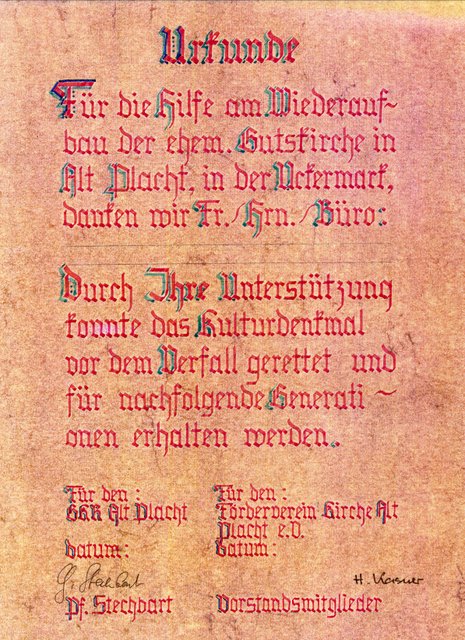 Urkunde
Für die Hilfe am Wiederauf-
bau der ehem. Gutskirche in
Alt Placht, in der Uckermark,
danken wir Fr./Hrn./Büro:
Durch Ihre Unterstützung
konnte das Kulturdenkmal
vor dem Verfall gerettet und
für nachfolgende Generati-
onen erhalten werden.
Für den: Für den:
GKR Alt Placht Förderverein Kirche Alt
Placht e.V.
Datum: Datum:
Pf. Stechbart Vorstandsmitglieder